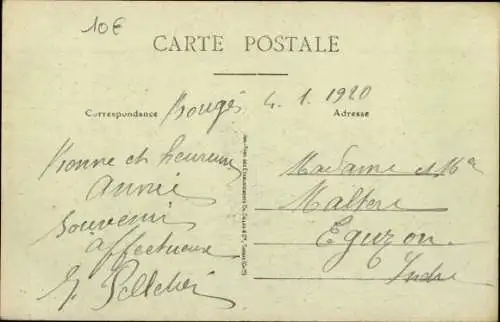 10€
CARTE POSTALE
Correspondance
Adresse
4. 1. 1920
Bonne et heureuse
année
Souvenir
affectueux
Madame et Mr
Maltere
Eguzon
Indre